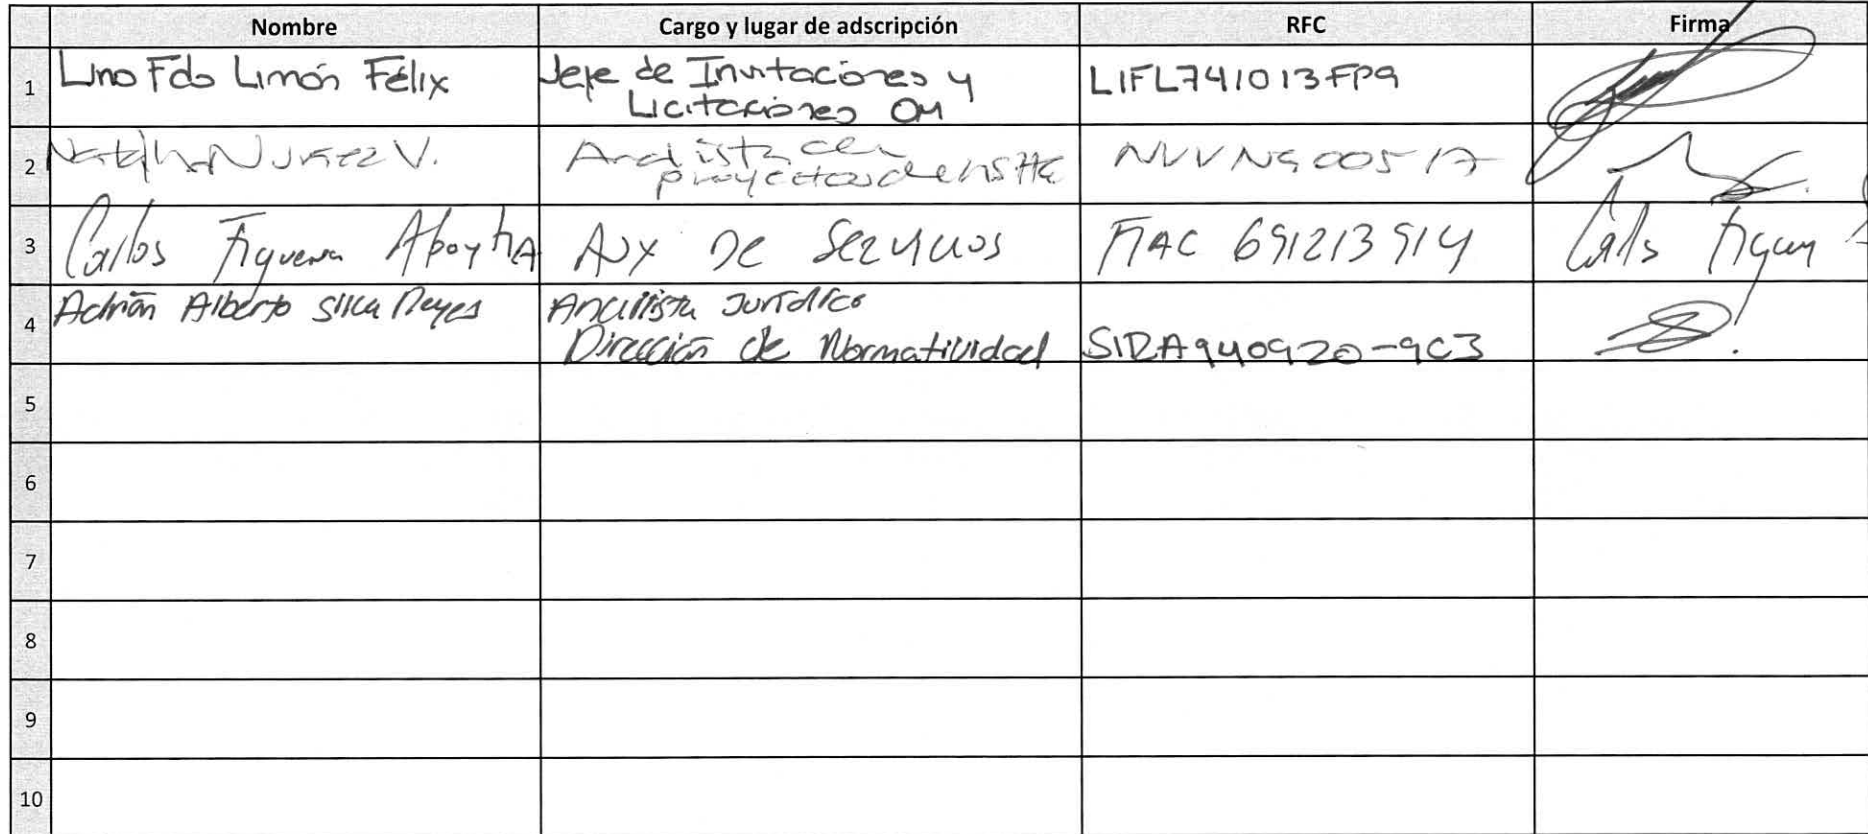 Nombre Cargo y lugar de adscripción RFC Firma
1 Lino Fdo Limón Félix Jefe de Invitaciones y LIFL741013FP9
Licitaciones OM
2 Natalha Nuñez V. Analista de NUVN900517
proyectos de
3 Carlos Figueroa Aux de Servicios FIAC 691213914 Carlos Figuer
4 Adrián Alberto Silva Reyes Analista Jurídico
Dirección de Normatividad SIRA940920-9C3
5
6
7
8
9
10